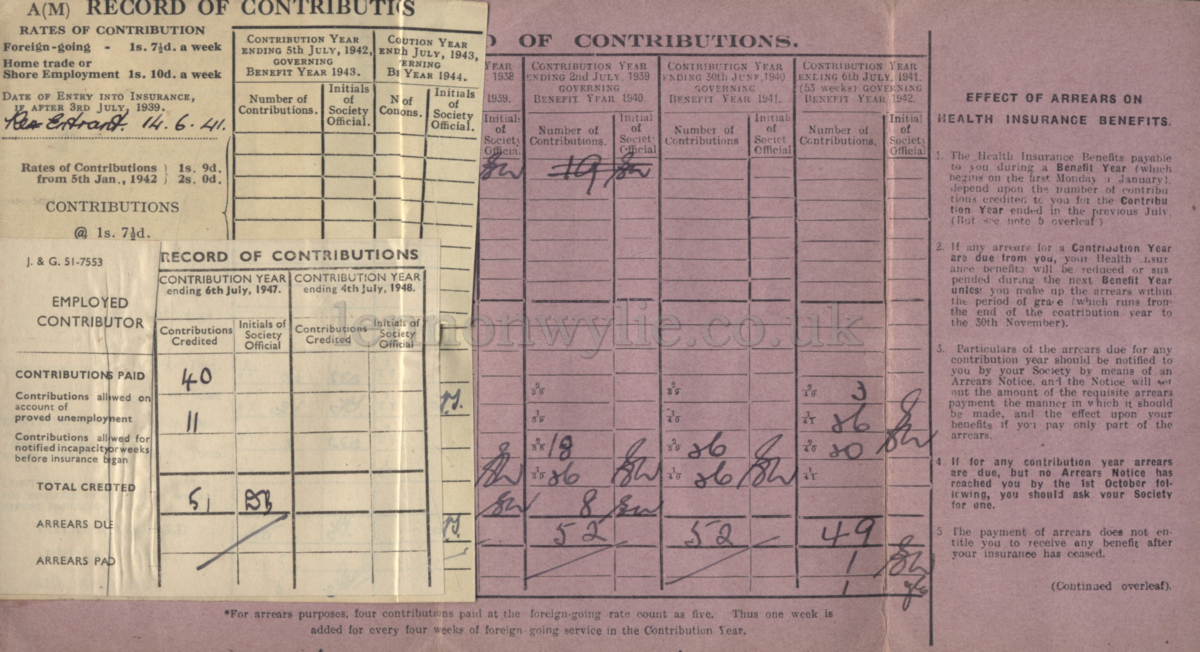 A(M) RECORD OF CONTRIBUTI S
RATES OF CONTRIBUTION
Foreign-going - 1s. 7½d. a week
Home trade or
Shore Employment 1s. 10d. a week
DATE OF ENTRY INTO INSURANCE,
IF AFTER 3RD JULY, 1939.
Entrant. 14.6.41.
Rates of Contributions } 1s. 9d.
from 5th Jan., 1942 } 2s. 0d.
CONTRIBUTIONS
@ 1s. 7½d.
CONTRIBUTION YEAR
ENDING 5TH JULY, 1942,
GOVERNING
BENEFIT YEAR 1943.
Number of
Contributions.
Initials
of
Society
Official.
JULY, 1943,
YEAR 1944.
Initials
of
Society
Official.
J. & G. 51-7553
EMPLOYED
CONTRIBUTOR
RECORD OF CONTRIBUTIONS
CONTRIBUTION YEAR
ending 6th July, 1947.
CONTRIBUTION YEAR
ending 4th July, 1948.
Contributions
Credited
Initials of
Society
Official
Contributions
Credited
Initials of
Society
Official
CONTRIBUTIONS PAID 40
Contributions allowed on
account of
proved unemployment 11
Contributions allowed for
notified incapacity or weeks
before insurance began
TOTAL CREDITED 51
ARREARS DUE
ARREARS PAID
D OF CONTRIBUTIONS.
YEAR
1938
1939.
Initial
of
Society
Official
CONTRIBUTION YEAR
ENDING 2ND JULY, 1939
GOVERNING
BENEFIT YEAR 1940.
Number of
Contributions.
Initial
of
Society
Official
CONTRIBUTION YEAR
ENDING 30TH JUNE, 1940
GOVERNING
BENEFIT YEAR 1941.
Number of
Contributions
Initial
of
Society
Official
CONTRIBUTION YEAR
ENDING 6TH JULY, 1941.
(53 weeks) GOVERNING
BENEFIT YEAR 1942.
Number of
Contributions.
Initials
of
Society
Official
19
3
26
18 26 20
26 26
8
52 52 49
1
1
*For arrears purposes, four contributions paid at the foreign-going rate count as five. Thus one week is
added for every four weeks of foreign-going service in the Contribution Year.
EFFECT OF ARREARS ON
HEALTH INSURANCE BENEFITS.
1. The Health Insurance Benefits payable
to you during a Benefit Year (which
begins on the first Monday in January),
depend upon the number of contribu
tions credited to you for the Contribu
tion Year ended in the previous July.
(But see note 5 overleaf)
2. If any arrears for a Contribution Year
are due from you, your Health Insur
ance benefits will be reduced or sus
pended during the next Benefit Year
unless you make up the arrears within
the period of grace (which runs from
the end of the contribution year to
the 30th November).
3. Particulars of the arrears due for any
contribution year should be notified to
you by your Society by means of an
Arrears Notice, and the Notice will set
out the amount of the requisite arrears
payment, the manner in which it should
be made, and the effect upon your
benefits if you pay only part of the
arrears.
4. If for any contribution year arrears
are due, but no Arrears Notice has
reached you by the 1st October fol-
lowing, you should ask your Society
for one.
5 The payment of arrears does not en-
title you to receive any benefit after
your insurance has ceased.
(Continued overleaf).
lennonwylie.co.uk